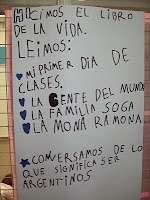 HICIMOS EL LIBRO
DE LA VIDA.
LEIMOS:
MI PRIMER DIA DE
CLASES.
LA GENTE DEL MUNDO
LA FAMILIA SOGA
LA MONA RAMONA
CONVERSAMOS DE LO
QUE SIGNIFICA SER
ARGENTINOS